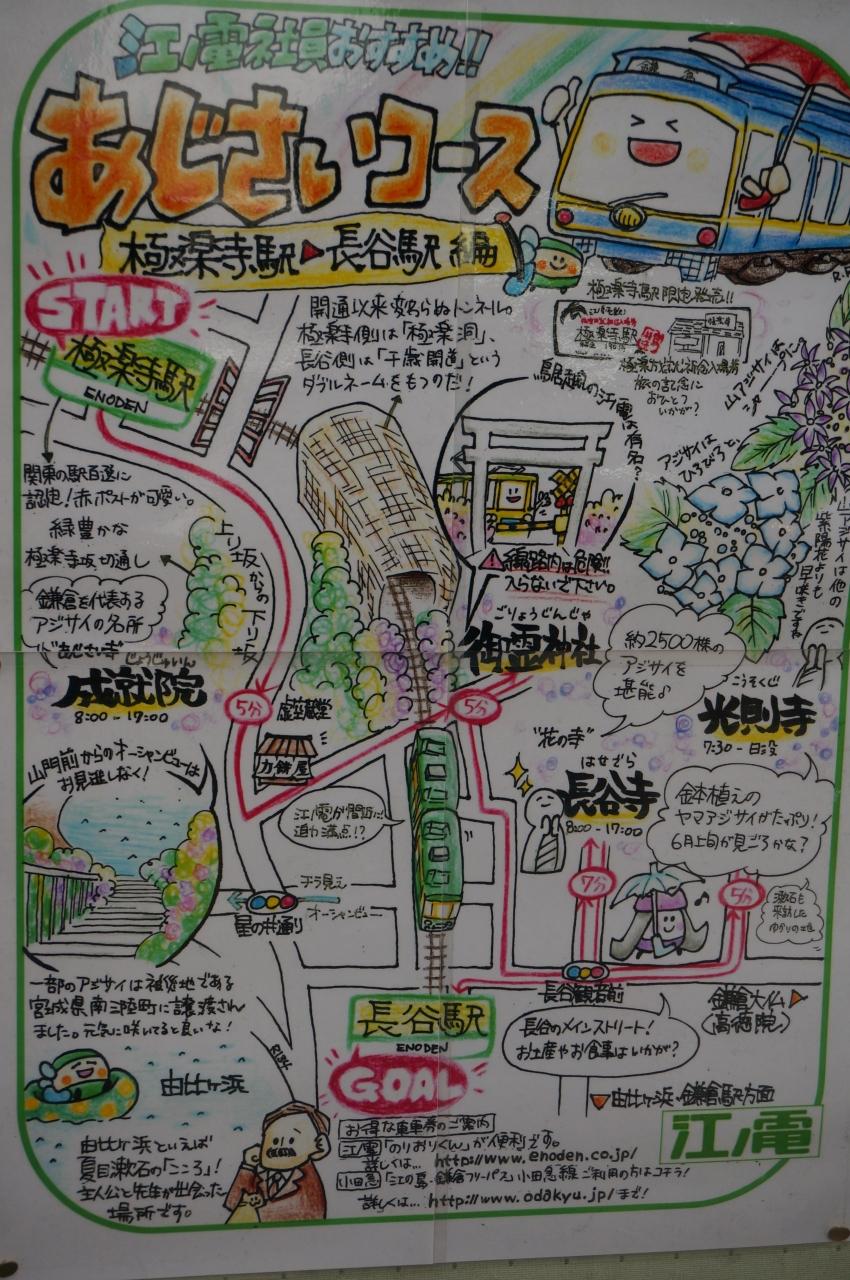 江ノ電社員おすすめ!!
あじさいコース
極楽寺駅▶長谷駅 編
鎌倉
START
極楽寺駅
ENODEN
開通以来変わらぬトンネル。
極楽寺側は「極楽洞」、
長谷側は「千歳開道」という
ダブルネームをもつのだ!
極楽寺駅限定発売!!
極楽寺駅
旅の記念に
おひとつ
いかが?
関東の駅百選に
認定!赤ポストが可愛い。
緑豊かな
極楽寺坂切通し
上り坂からの下り坂
鳥居越しの江ノ電は有名?
⚠線路内は危険!!
入らないで下さい。
アジサイは
ひろびろと、
山アジサイは
山アジサイは他の
紫陽花よりも
早咲きですね
鎌倉を代表する
アジサイの名所
じょうじゅいん
成就院
8:00-17:00
5分
虚空蔵堂
力餅屋
ごりょうじんじゃ
御霊神社
5分
約2500株の
アジサイを
堪能♪
こうそくじ
光則寺
7:30-日没
"花の寺"
はせでら
長谷寺
8:00-17:00
鉢植えの
ヤマアジサイがたっぷり!
6月上旬が見ごろかな?
山門前からのオーシャンビューは
お見逃しなく!
江ノ電が間近に!
迫力満点!?
チラ見え
オーシャンビュー
星の井通り
7分
5分
漱石も
来訪した
ゆかりの地
長谷観音前
鎌倉大仏▶
(高徳院)
一部のアジサイは被災地である
宮城県南三陸町に譲渡さん
ました。元気に咲いてると良いな!
R134
長谷駅
ENODEN
GOAL
長谷のメインストリート!
お土産やお食事はいかが?
▼由比ヶ浜・鎌倉駅方面
江ノ電
由比ヶ浜
由比ヶ浜といえば
夏目漱石の「こころ」!
主人公と先生が出会った
場所です。
お得な乗車券のご案内
江ノ電「のりおりくん」が便利です。
詳しくは… http://www.enoden.co.jp/
小田急「江の島・鎌倉フリーパス」小田急線ご利用の方はコチラ!
詳しくは… http://www.odakyu.jp/まで!